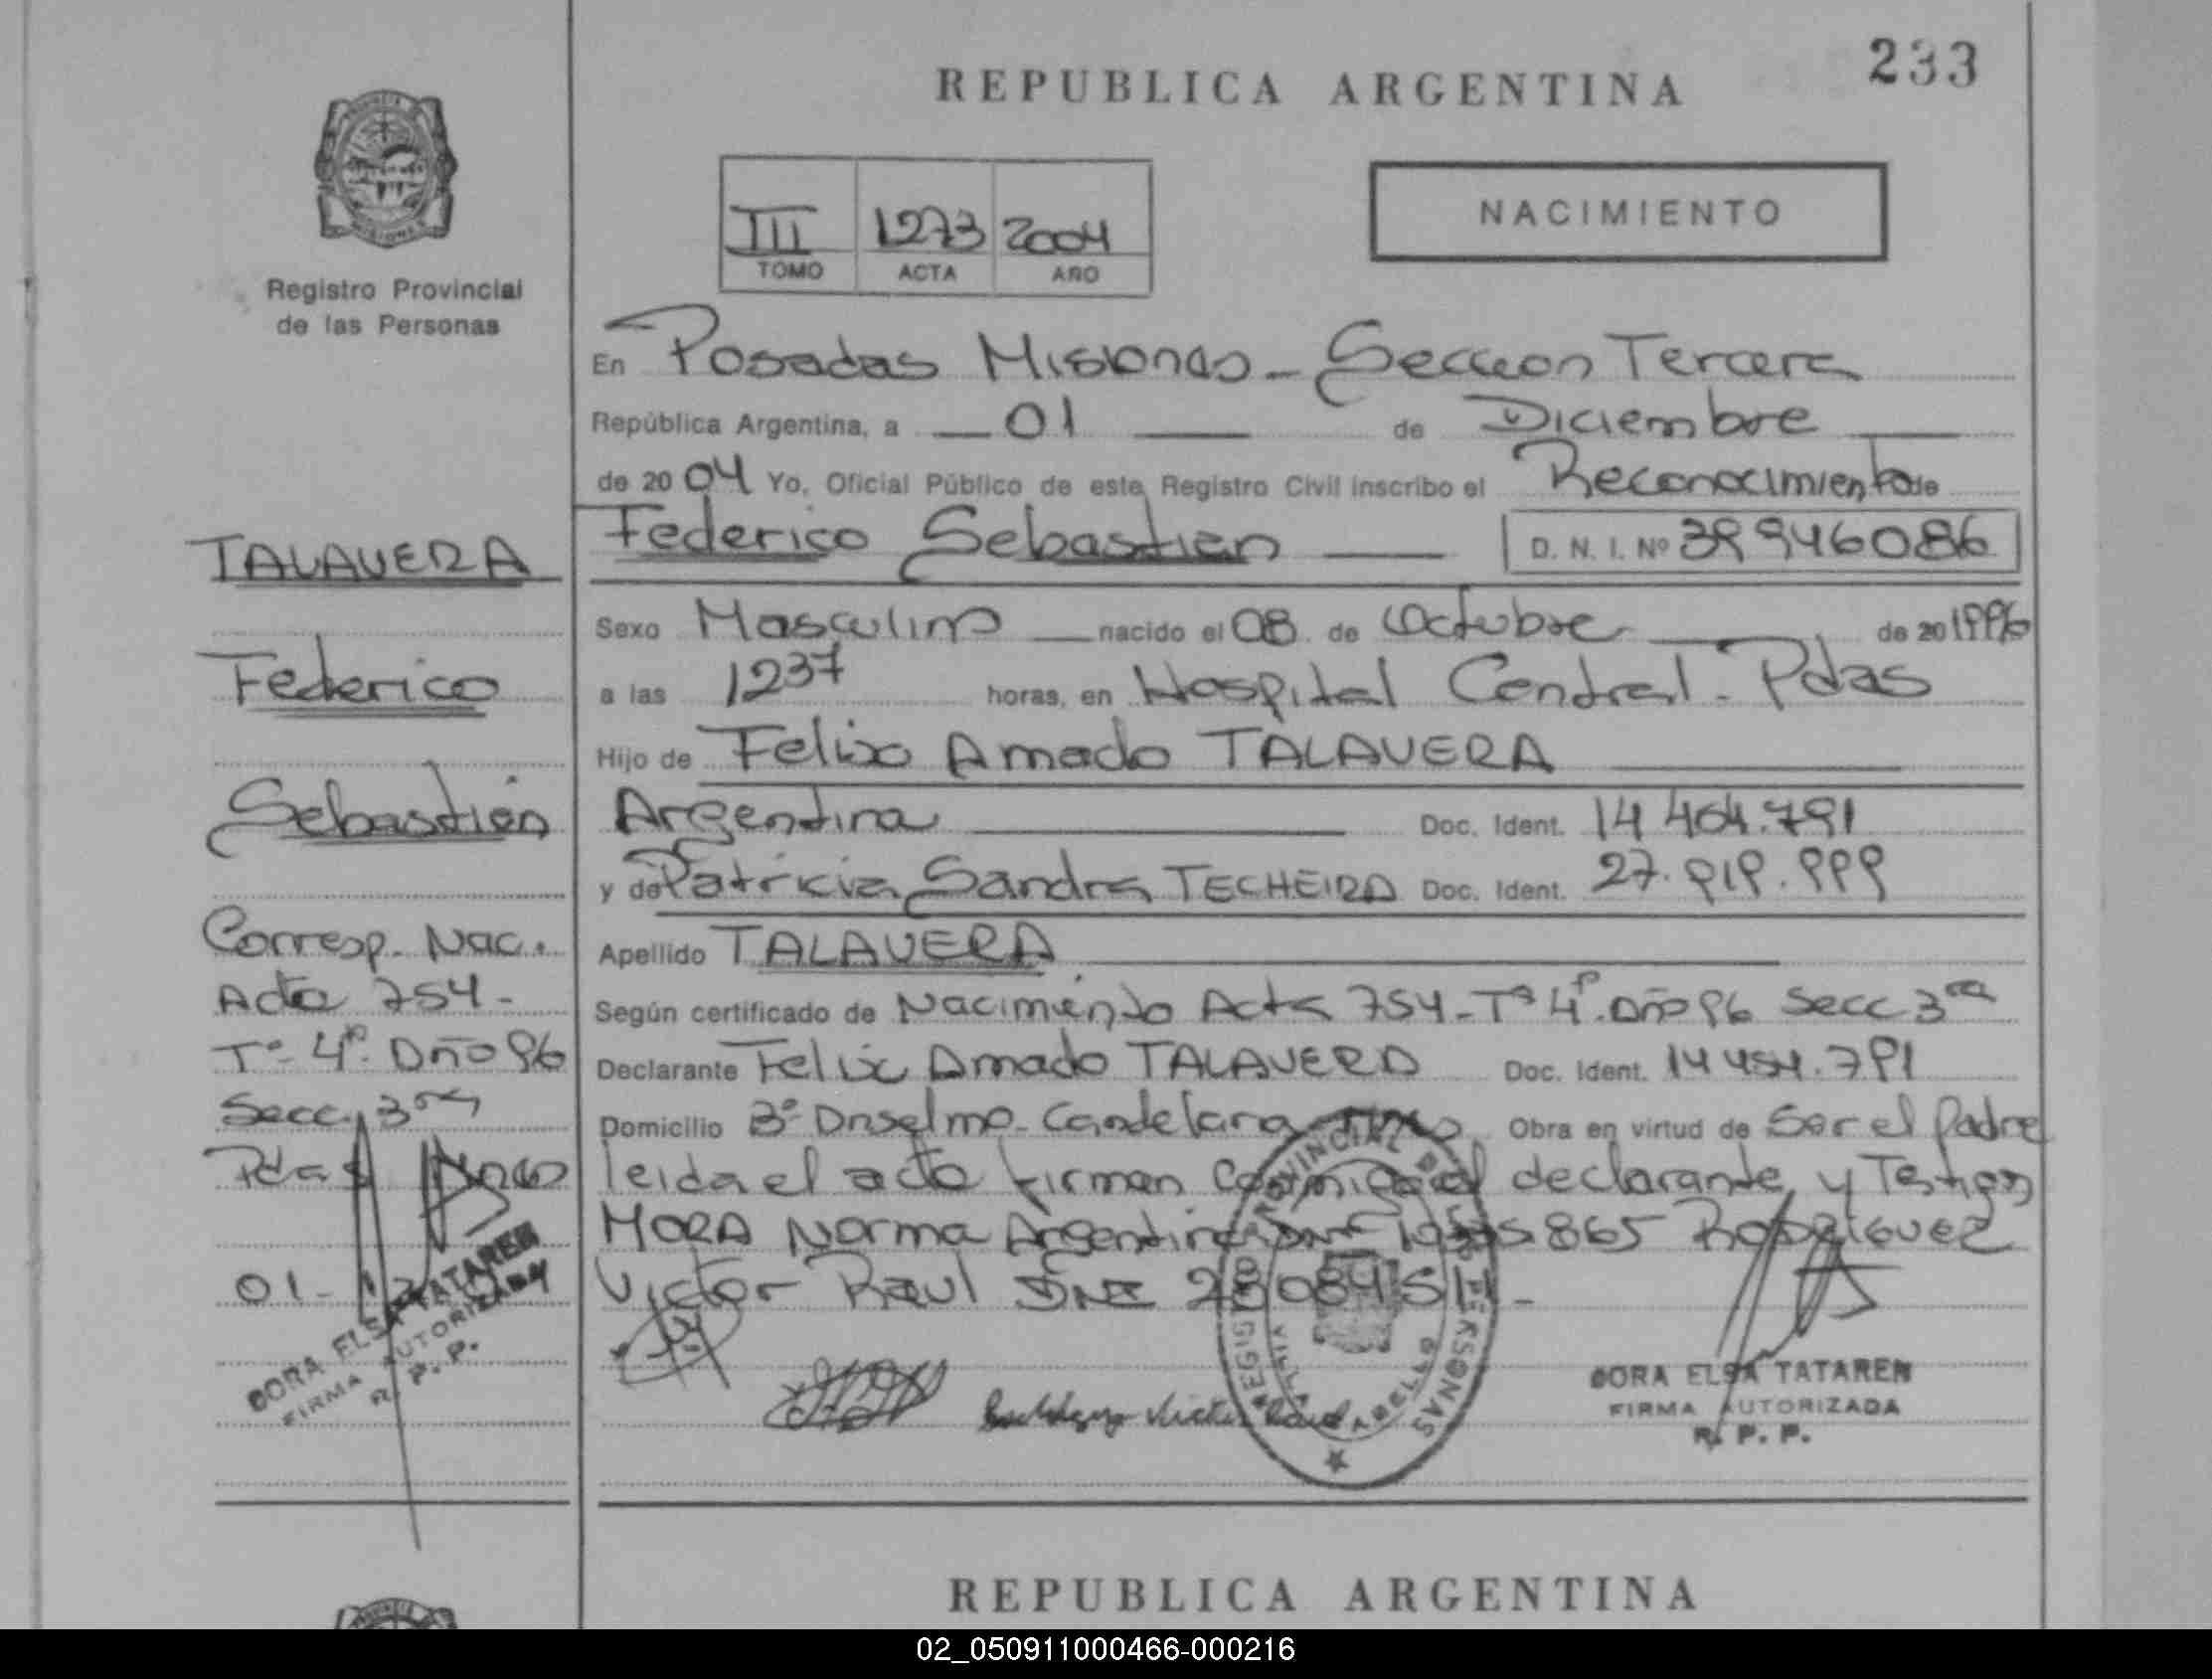 233
REPUBLICA ARGENTINA
Registro Provincial
de las Personas
III 1273 2004
TOMO ACTA AÑO
NACIMIENTO
En Posadas Misiones - Seccion Tercera
República Argentina, a 01 de Diciembre
de 2004 Yo, Oficial Público de este Registro Civil inscribo el Reconocimiento de
Federico Sebastian D. N. I. Nº 39946086
Sexo Masculino nacido el 08 de Octubre de 20 1996
a las 1237 horas, en Hospital Central - Pdas
Hijo de Felix Amado TALAVERA
Argentina Doc. Ident.
y de Patricia Sandra TECHEIRA Doc. Ident. 27.919.999
Apellido TALAVERA
Según certificado de Nacimiento Acta 754 - Tº 4º. Año 96 Secc 3ra
Declarante Felix Amado TALAVERA Doc. Ident.
Domicilio Bº Anselmo - Candelaria Obra en virtud de Ser el Padre
leida el acta firman conmigo el declarante y Testigos
MORA Norma Argentina DNI 865 RODRIGUEZ
Victor Raul DNI
DORA ELSA TATAREN
FIRMA AUTORIZADA
R. P. P.
TALAVERA
Federico
Sebastián
Corresp. Nac.
Acta 754 -
Tº - 4º. Año 96
Secc. 3ra
Pdas
01 - 12
DORA ELSA TATAREN
FIRMA AUTORIZADA
R. P. P.
REGISTRO PROVINCIAL DE LAS PERSONAS
REPUBLICA ARGENTINA
02_050911000466-000216